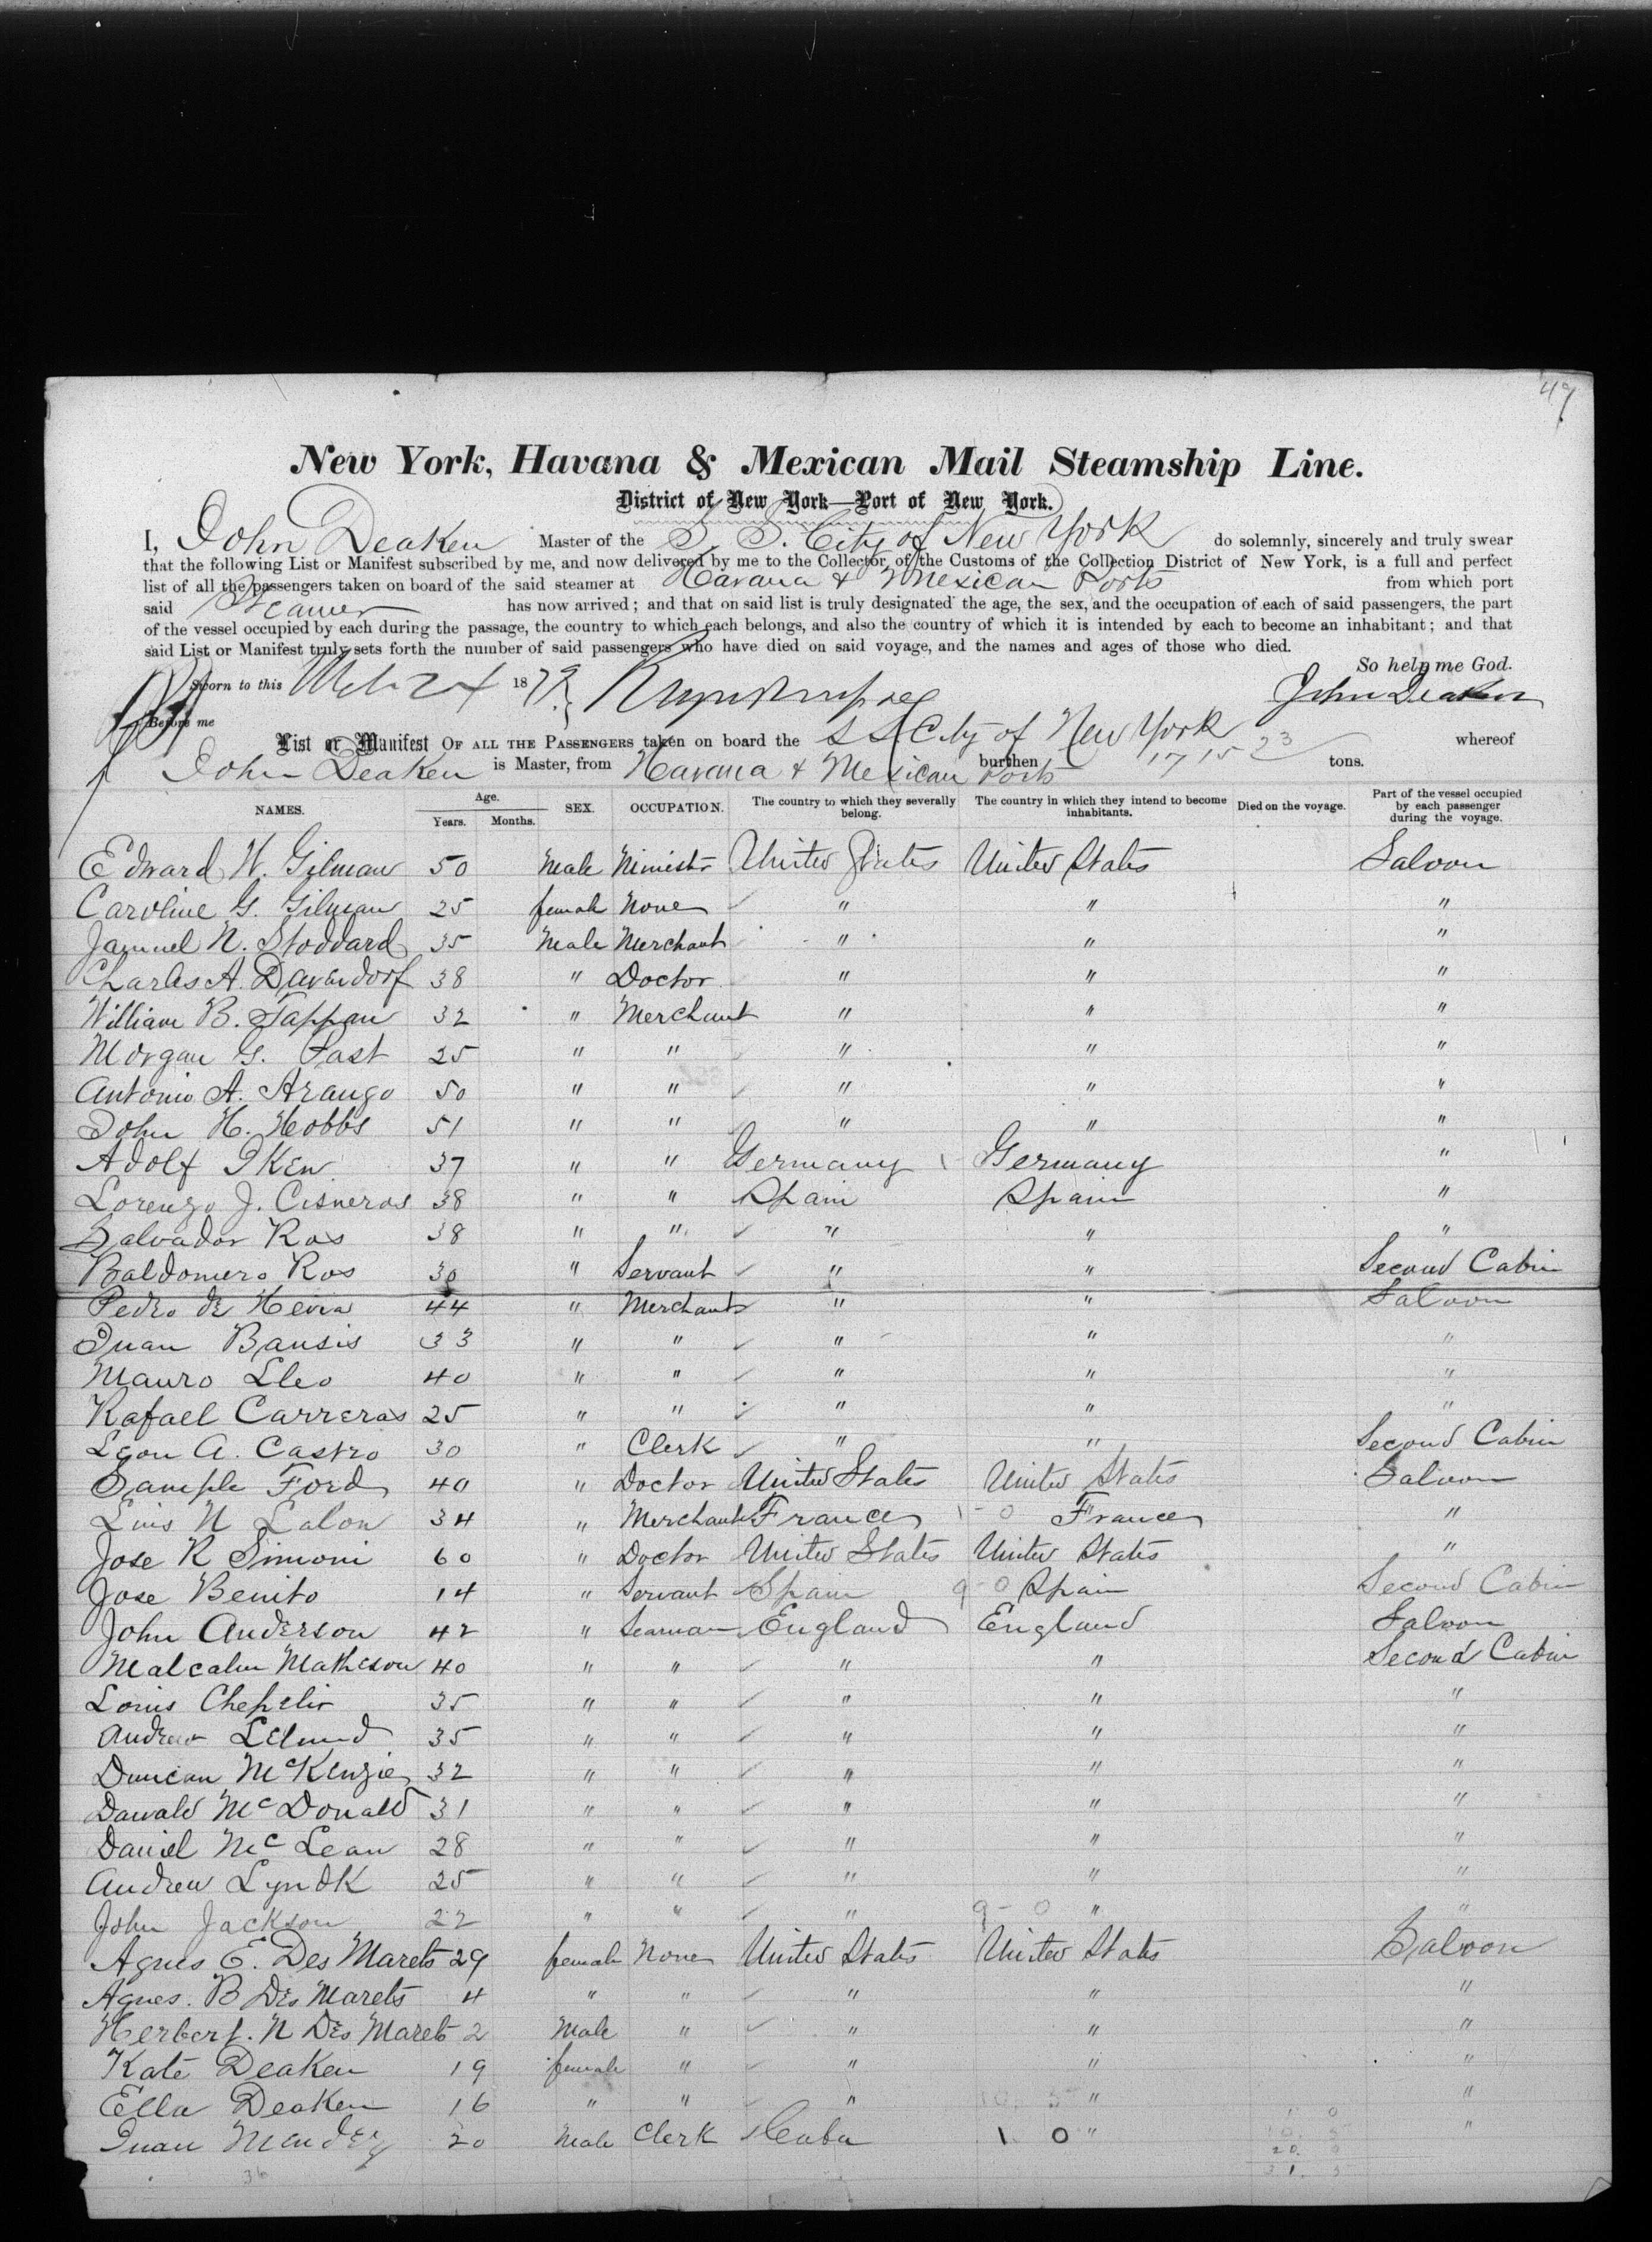 49
New York, Havana & Mexican Mail Steamship Line.
District of New York—Port of New York.
I, John Deaken Master of the S. S. City of New York do solemnly, sincerely and truly swear
that the following List or Manifest subscribed by me, and now delivered by me to the Collector of the Customs of the Collection District of New York, is a full and perfect
list of all the passengers taken on board of the said steamer at Havana & Mexican Ports from which port
said Steamer has now arrived; and that on said list is truly designated the age, the sex, and the occupation of each of said passengers, the part
of the vessel occupied by each during the passage, the country to which each belongs, and also the country of which it is intended by each to become an inhabitant; and that
said List or Manifest truly sets forth the number of said passengers who have died on said voyage, and the names and ages of those who died.
So help me God.
Sworn to this 24 1879 John Deaken
Before me
List or Manifest OF ALL THE PASSENGERS taken on board the S S City of New York whereof
John Deaken is Master, from Havana & Mexican Ports burthen 1715 23 tons.
NAMES. Age. Years. Months. SEX. OCCUPATION. The country to which they severally belong. The country in which they intend to become inhabitants. Died on the voyage. Part of the vessel occupied by each passenger during the voyage.
Edward W. Gilman 50 Male Minister United States United States Saloon
Caroline G. Gilman 25 female None " " "
Samuel N. Stoddard 35 Male Merchant " " "
Charles A. Davendorf 38 " Doctor " " "
William B. Tappan 32 " Merchant " " "
Morgan G. Past 25 " " " " "
Antonio A. Arango 50 " " " " "
John H. Hobbs 51 " " " " "
Adolf Iken 37 " " Germany Germany "
Lorenzo J. Cisneros 38 " " Spain Spain "
Salvador Ros 38 " " " " "
Baldomero Ros 30 " Servant " " Second Cabin
Pedro de Hevia 44 " Merchant " " Saloon
Juan Bausis 33 " " " " "
Mauro Lleo 40 " " " " "
Rafael Carreras 25 " " " " "
Leon A. Castro 30 " Clerk " " Second Cabin
Sample Ford 40 " Doctor United States United States Saloon
Luis N Lalon 34 " Merchant France 1 - 0 France "
Jose R Simoni 60 " Doctor United States United States "
Jose Benito 14 " Servant Spain 9 - 0 Spain Second Cabin
John Anderson 42 " Seaman England England Saloon
Malcalm Matheson 40 " " " " Second Cabin
Louis Chepelir 35 " " " " "
Andrew 35 " " " " "
Duncan McKenzie 32 " " " " "
Dawald McDonald 31 " " " " "
Daniel McLean 28 " " " " "
Andrew Lyndk 25 " " " " "
John Jackson 22 " " " 9 - 0 " "
Agnes E. Des Marets 29 female None United States United States Saloon
Agnes. B Des Marets 4 " " " " "
Herbert. N Des Marets 2 Male " " " "
Kate Deaken 19 female " " " "
Ella Deaken 16 " " " " "
Juan Mendez 20 Male Clerk Cuba 1 0 " "
36